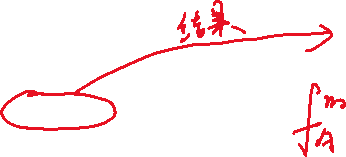 结果
f_A^m